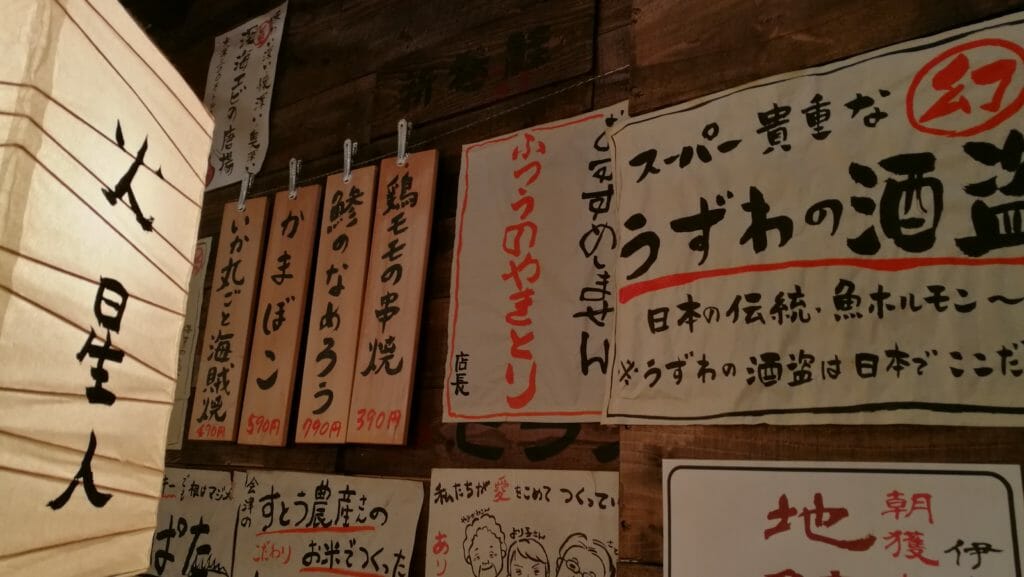 火星人
深海エビの唐揚
いか丸ごと海賊焼
690円
かまぼこ
590円
鯵のなめろう
790円
鶏モモの串焼
390円
おすすめしません
ふつうのやきとり
店長
幻
スーパー貴重な
うずわの酒盗
日本の伝統・魚ホルモン〜
※うずわの酒盗は日本でここだ
会津の
すとう農産さんの
こだわり お米でつくった
私たちが愛をこめてつくってい
より子さん
あり
ぱた
朝獲
地
伊